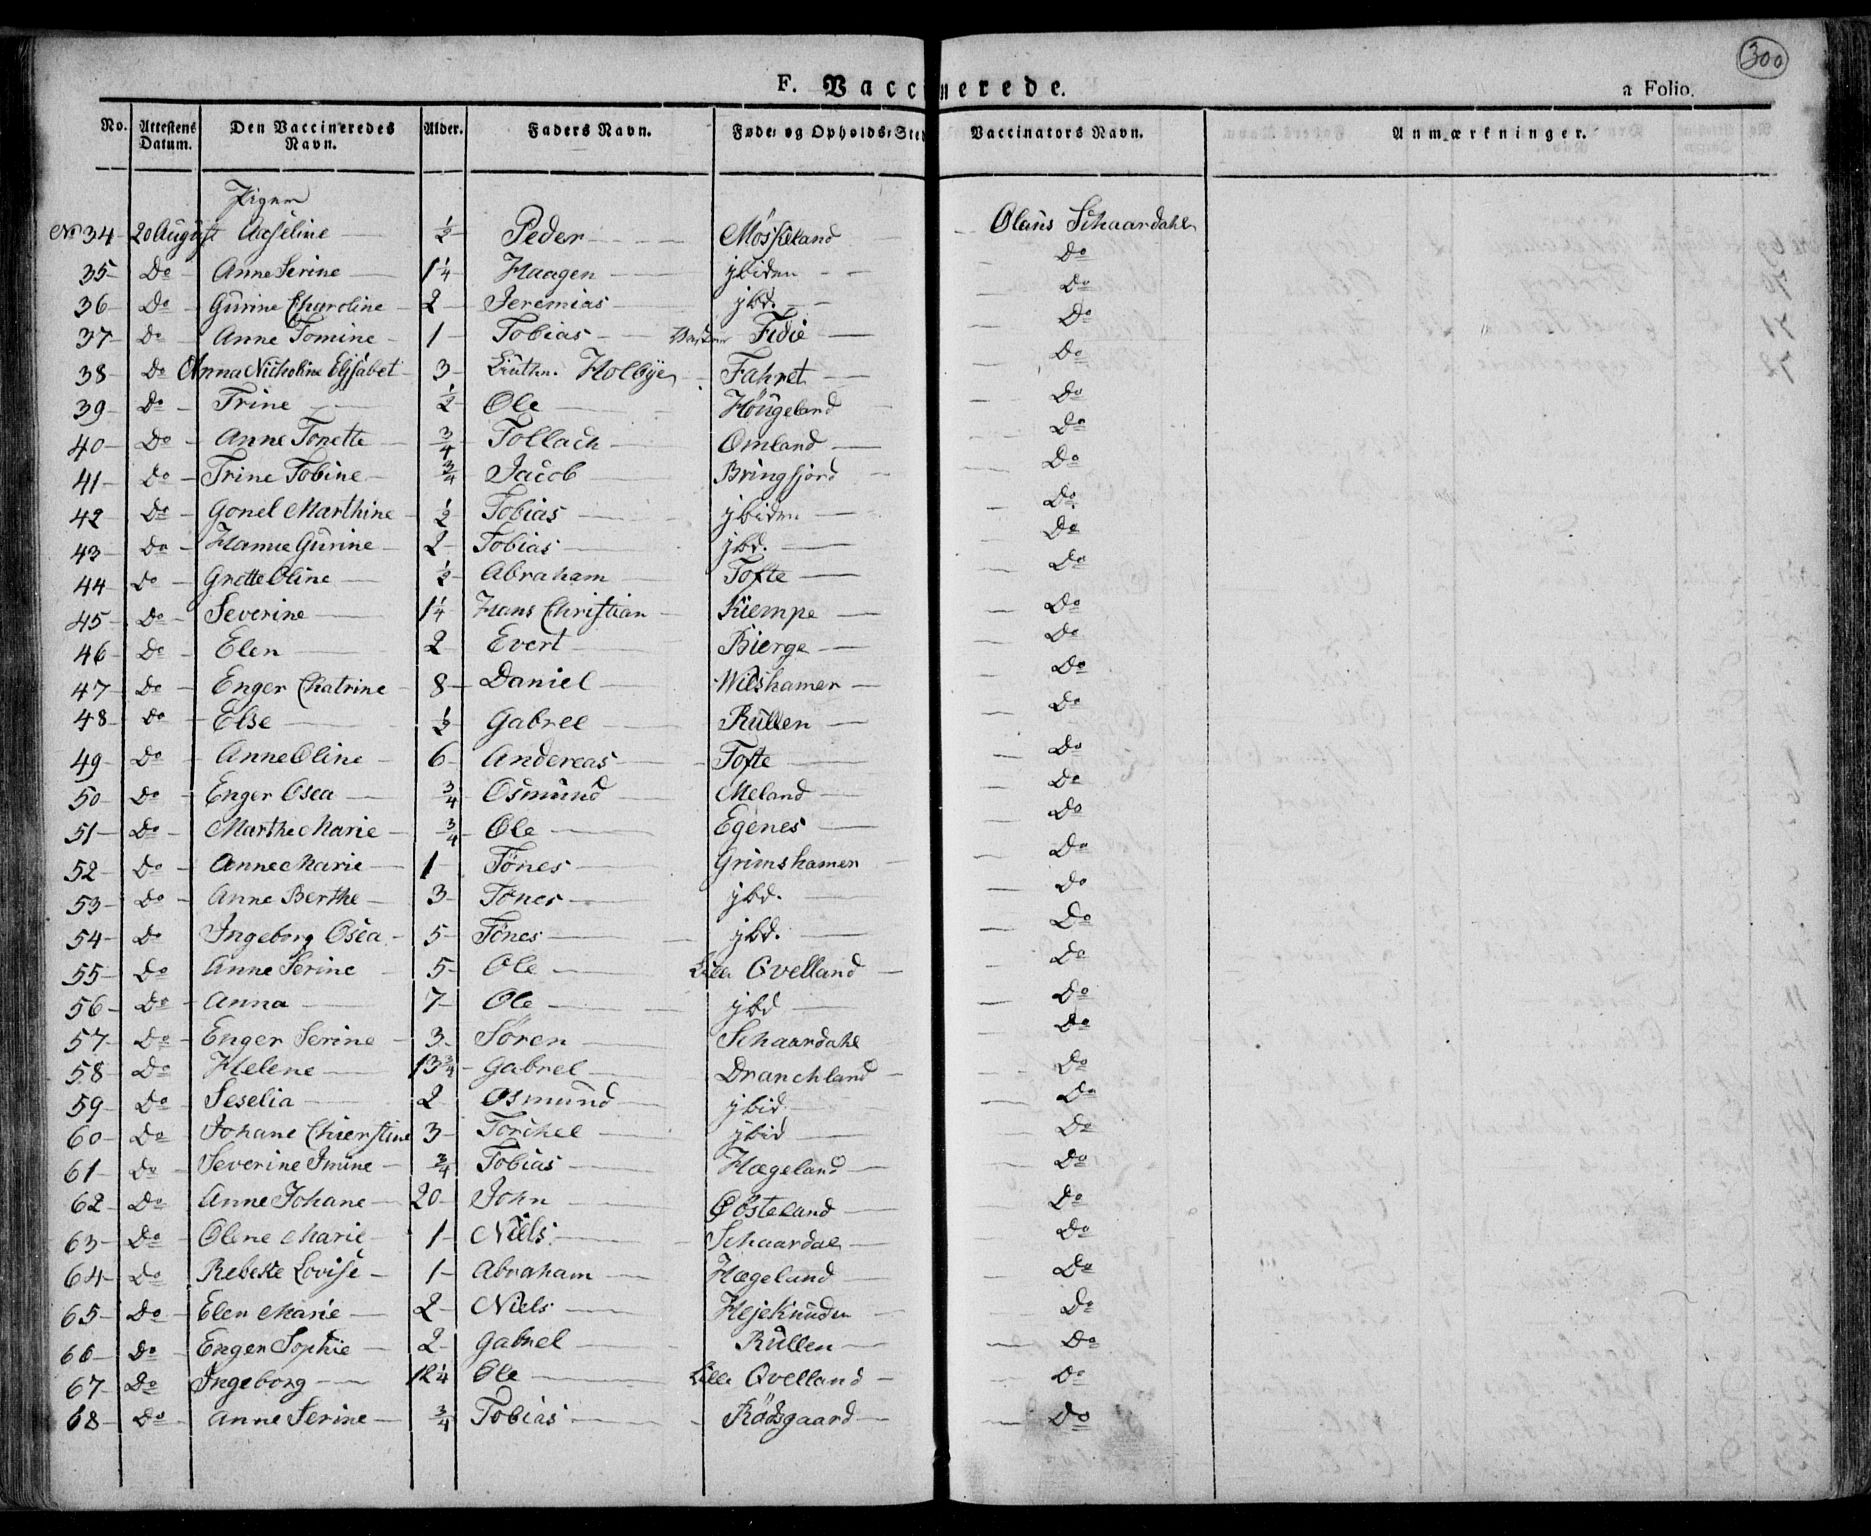 300
F. Vaccinerede. a Folio.
No. Attestens Datum. Den Vaccineredes Navn. Alder. Faders Navn. Føde- og Opholds-Sted Vaccinators Navn. Anmærkninger.
Piger
No 34 20 August Aaseline ½ Peder Møskeland Olaus Schaardahl
35 Do Anne Serine 1¼ Haagen ibidem Do
36 Do Gurine Charoline 2 Jeremias ibd. Do
37 Do Anne Tomine 1 Tobias Fidie Do
38 Do Anna Nicholine Elisabet 3 Lieutn. Holbye Fahret Do
39 Do Trine ½ Ole Høugeland Do
40 Do Anne Tonette ¾ Tollach Omland Do
41 Do Trine Tobine ¾ Jacob Bringsjord Do
42 Do Gonel Marthine ½ Tobias ibidem Do
43 Do Hanne Gurine 2 Tobias ibd. Do
44 Do Grette Oline ½ Abraham Tofte Do
45 Do Severine 1¼ Hans Christian Kiempe Do
46 Do Elen 2 Evert Bierge Do
47 Do Enger Chatrine 8 Daniel Wilshamen Do
48 Do Else ½ Gabrel Rullen Do
49 Do Anne Oline 6 Andereas Tofte Do
50 Do Enger Osea ¾ Osmund Meland Do
51 Do Marthe Marie ¾ Ole Egenes Do
52 Do Anne Marie 1 Tönes Grimshamen Do
53 Do Anne Berthe 3 Tönes ibd. Do
54 Do Ingeborg Osea 5 Tönes ibd. Do
55 Do Anne Serine 5 Ole Lille Qvelland Do
56 Do Anna 7 Ole ibd Do
57 Do Enger Serine 3 Sören Schaardahl Do
58 Do Helene 13¾ Gabrel Dranchland Do
59 Do Seselia 2 Osmund ibid. Do
60 Do Johane Chierstine 3 Torchel ibid Do
61 Do Severine Imine ¾ Tobias Hægeland Do
62 Do Anne Johane 20 John Østeland Do
63 Do Olene Marie 1 Niels Schaardal Do
64 Do Rebeke Lovise 1 Abraham Hægeland Do
65 Do Elen Marie 2 Niels Do
66 Do Enger Sophie 2 Gabriel Rullen Do
67 Do Ingeborg 12¼ Ole Lille Qvelland Do
68 Do Anne Serine ¾ Tobias Rödsgaard Do